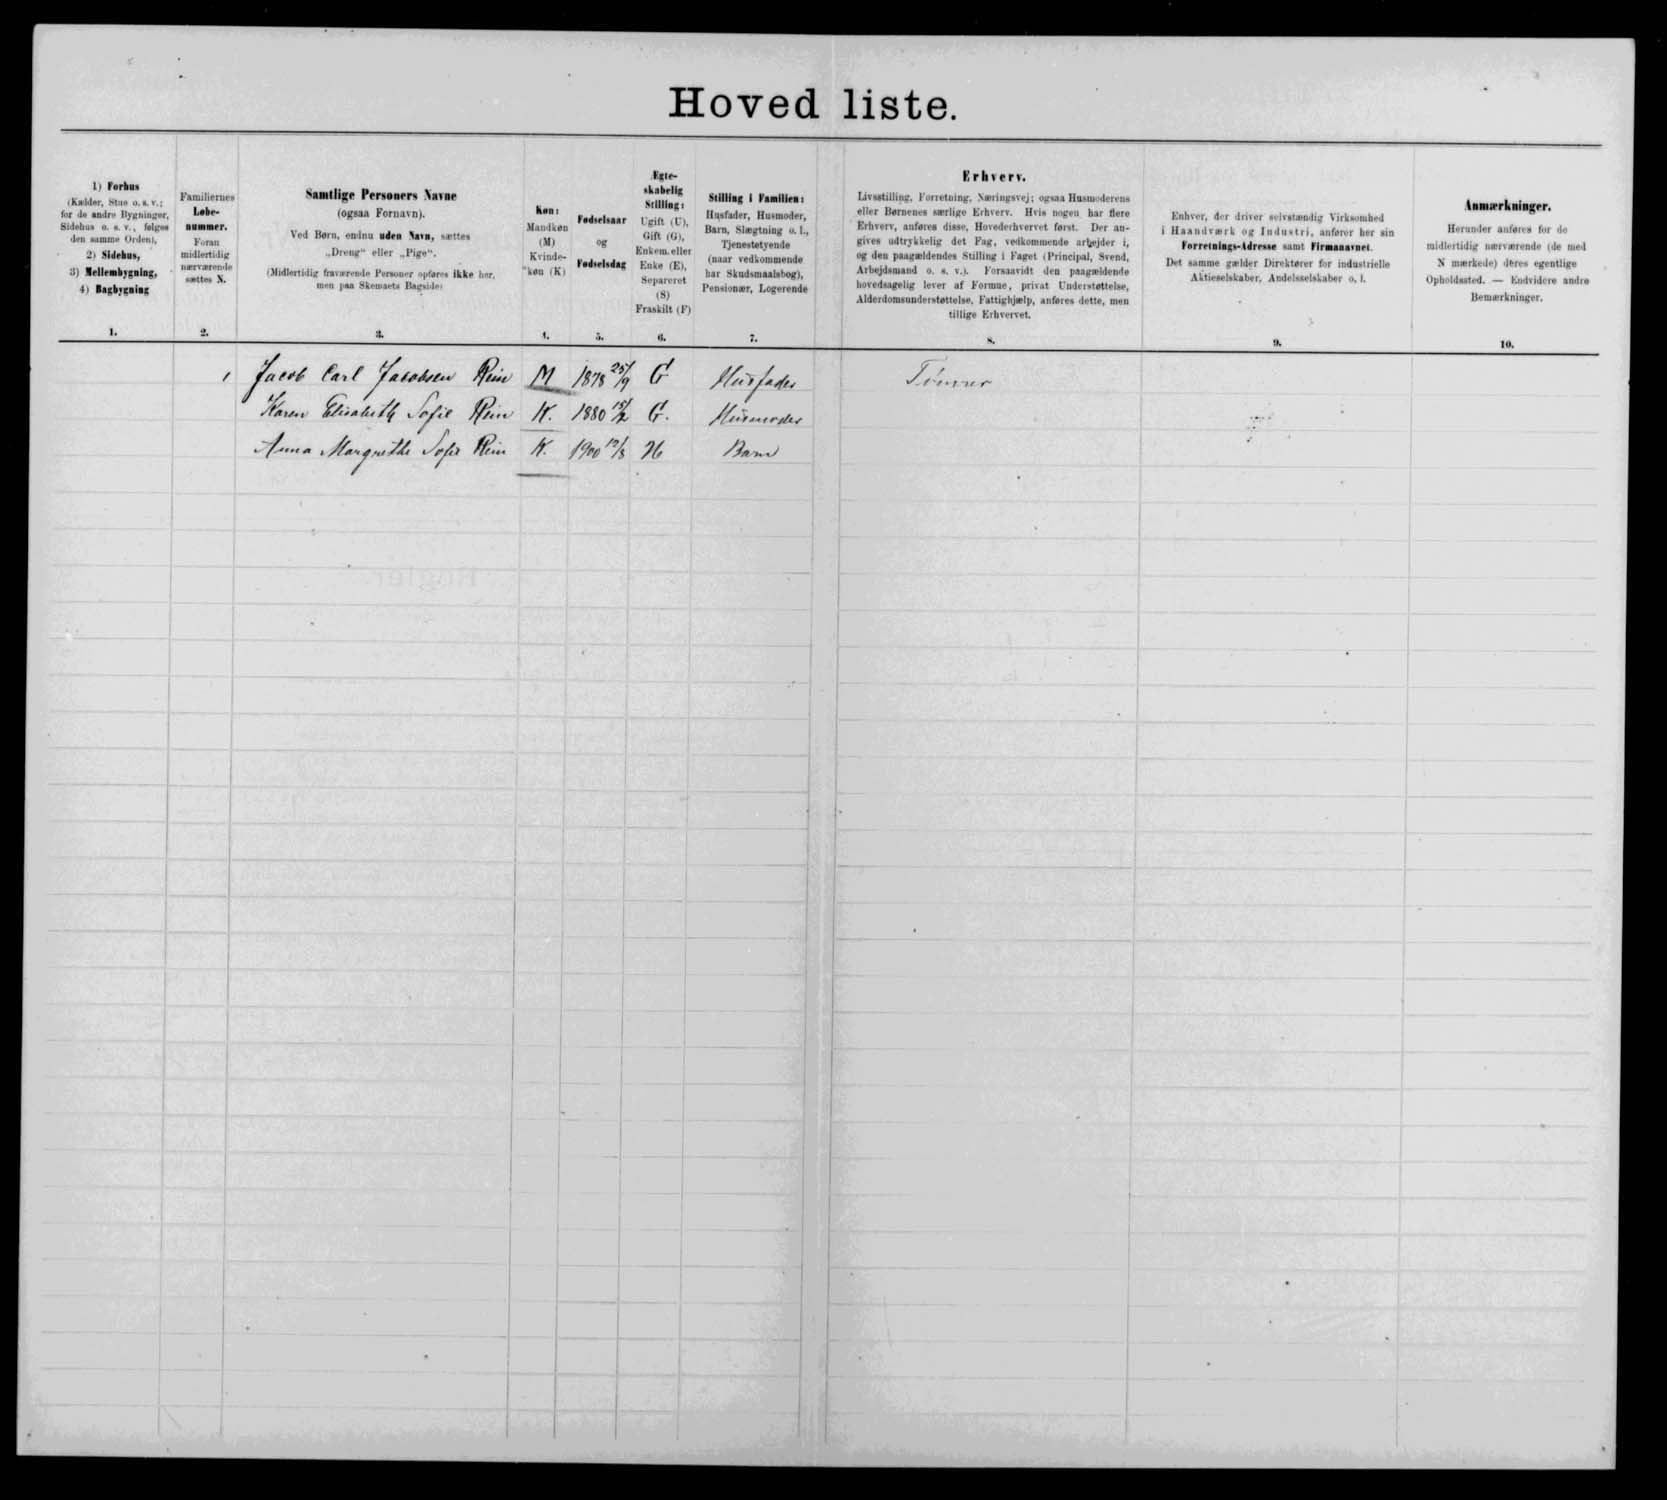 Hoved liste.
1) Forhus
(Kælder, Stue o. s. v.;
for de andre Bygninger,
Sidehus o. s. v., følges
den samme Orden),
2) Sidehus,
3) Mellembygning,
4) Bagbygning
1.
Familiernes
Løbe-
nummer.
Foran
midlertidig
nærværende
sættes N.
2.
Samtlige Personers Navne
(ogsaa Fornavn).
Ved Børn, endnu uden Navn, sættes
„Dreng“ eller „Pige“.
(Midlertidig fraværende Personer opføres ikke her,
men paa Skemaets Bagside)
3.
Køn:
Mandkøn
(M)
Kvinde-
køn (K)
4.
Fødselsaar
og
Fødselsdag
5.
Ægte-
skabelig
Stilling:
Ugift (U),
Gift (G),
Enkem. eller
Enke (E),
Separeret
(S)
Fraskilt (F)
6.
Stilling i Familien:
Husfader, Husmoder,
Barn, Slægtning o. l.,
Tjenestetyende
(naar vedkommende
har Skudsmaalsbog),
Pensionær, Logerende
7.
Erhverv.
Livsstilling, Forretning, Næringsvej; ogsaa Husmoderens
eller Børnenes særlige Erhverv. Hvis nogen har flere
Erhverv, anføres disse, Hovederhvervet først. Der an-
gives udtrykkelig det Fag, vedkommende arbejder i,
og den paagældendes Stilling i Faget (Principal, Svend,
Arbejdsmand o. s. v.). Forsaavidt den paagældende
hovedsagelig lever af Formue, privat Understøttelse,
Alderdomsunderstøttelse, Fattighjælp, anføres dette, men
tillige Erhvervet.
8.
Enhver, der driver selvstændig Virksomhed
i Haandværk og Industri, anfører her sin
Forretnings-Adresse samt Firmanavnet.
Det samme gælder Direktører for industrielle
Aktieselskaber, Andelsselskaber o. l.
9.
Anmærkninger.
Herunder anføres for de
midlertidig nærværende (de med
N mærkede) deres egentlige
Opholdssted. — Endvidere andre
Bemærkninger.
10.
1 Jacob Carl Jacobsen Rein M 1878 25/9 G Husfader Tømrer
Karen Elisabeth Sofie Rein K. 1880 15/2 G. Husmoder
Anna Margrethe Sofie Rein K. 1900 Barn